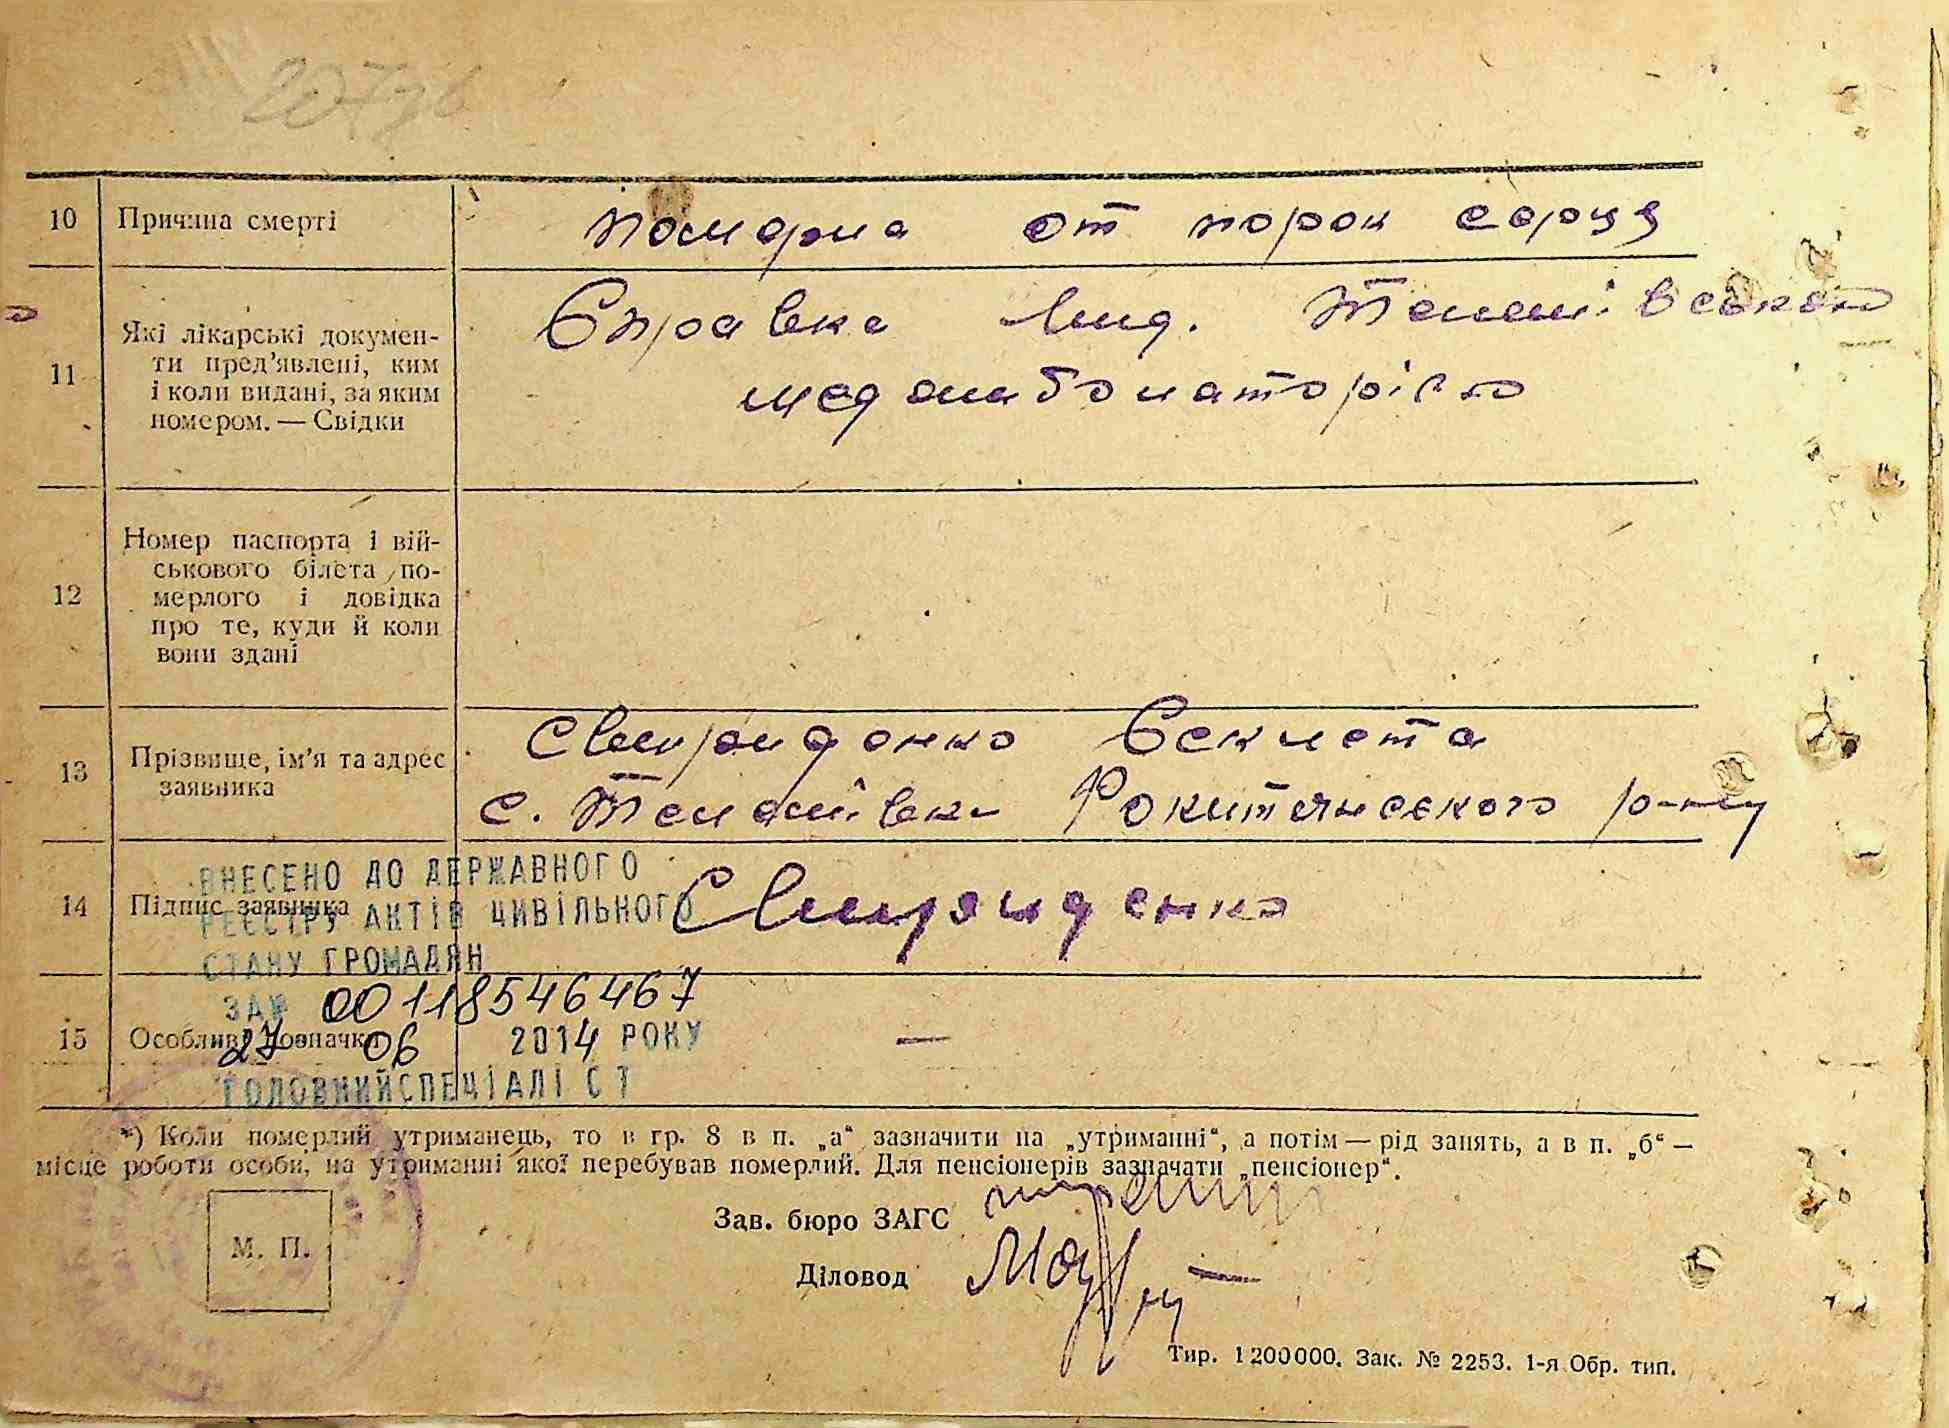 10 Причина смерті
померла от порок серця
11 Які лікарські докумен-
ти пред'явлені, ким
і коли видані, за яким
номером. — Свідки
Справка вид. Телешівською
медамболаторією
12 Номер паспорта і вій-
ськового білета по-
мерлого і довідка
про те, куди й коли
вони здані
13 Прізвище, ім'я та адрес
заявника
Свириденко Векла
с. Телешівка Рокитянського р-ну
14 Підпис заявника
Свириденко
ВНЕСЕНО ДО ДЕРЖАВНОГО
РЕЄСТРУ АКТІВ ЦИВІЛЬНОГО
СТАНУ ГРОМАДЯН
ЗА № 00118546467
27 06 2014 РОКУ
ГОЛОВНИЙ СПЕЦІАЛІСТ
15 Особливі позначки
—
*) Коли померлий утриманець, то в гр. 8 в п. „а“ зазначити на „утриманні“, а потім — рід занять, а в п. „б“ —
місце роботи особи, на утриманні якої перебував померлий. Для пенсіонерів зазначати „пенсіонер“.
Зав. бюро ЗАГС
Діловод
М. П.
Тир. 1200000. Зак. № 2253. 1-я Обр. тип.